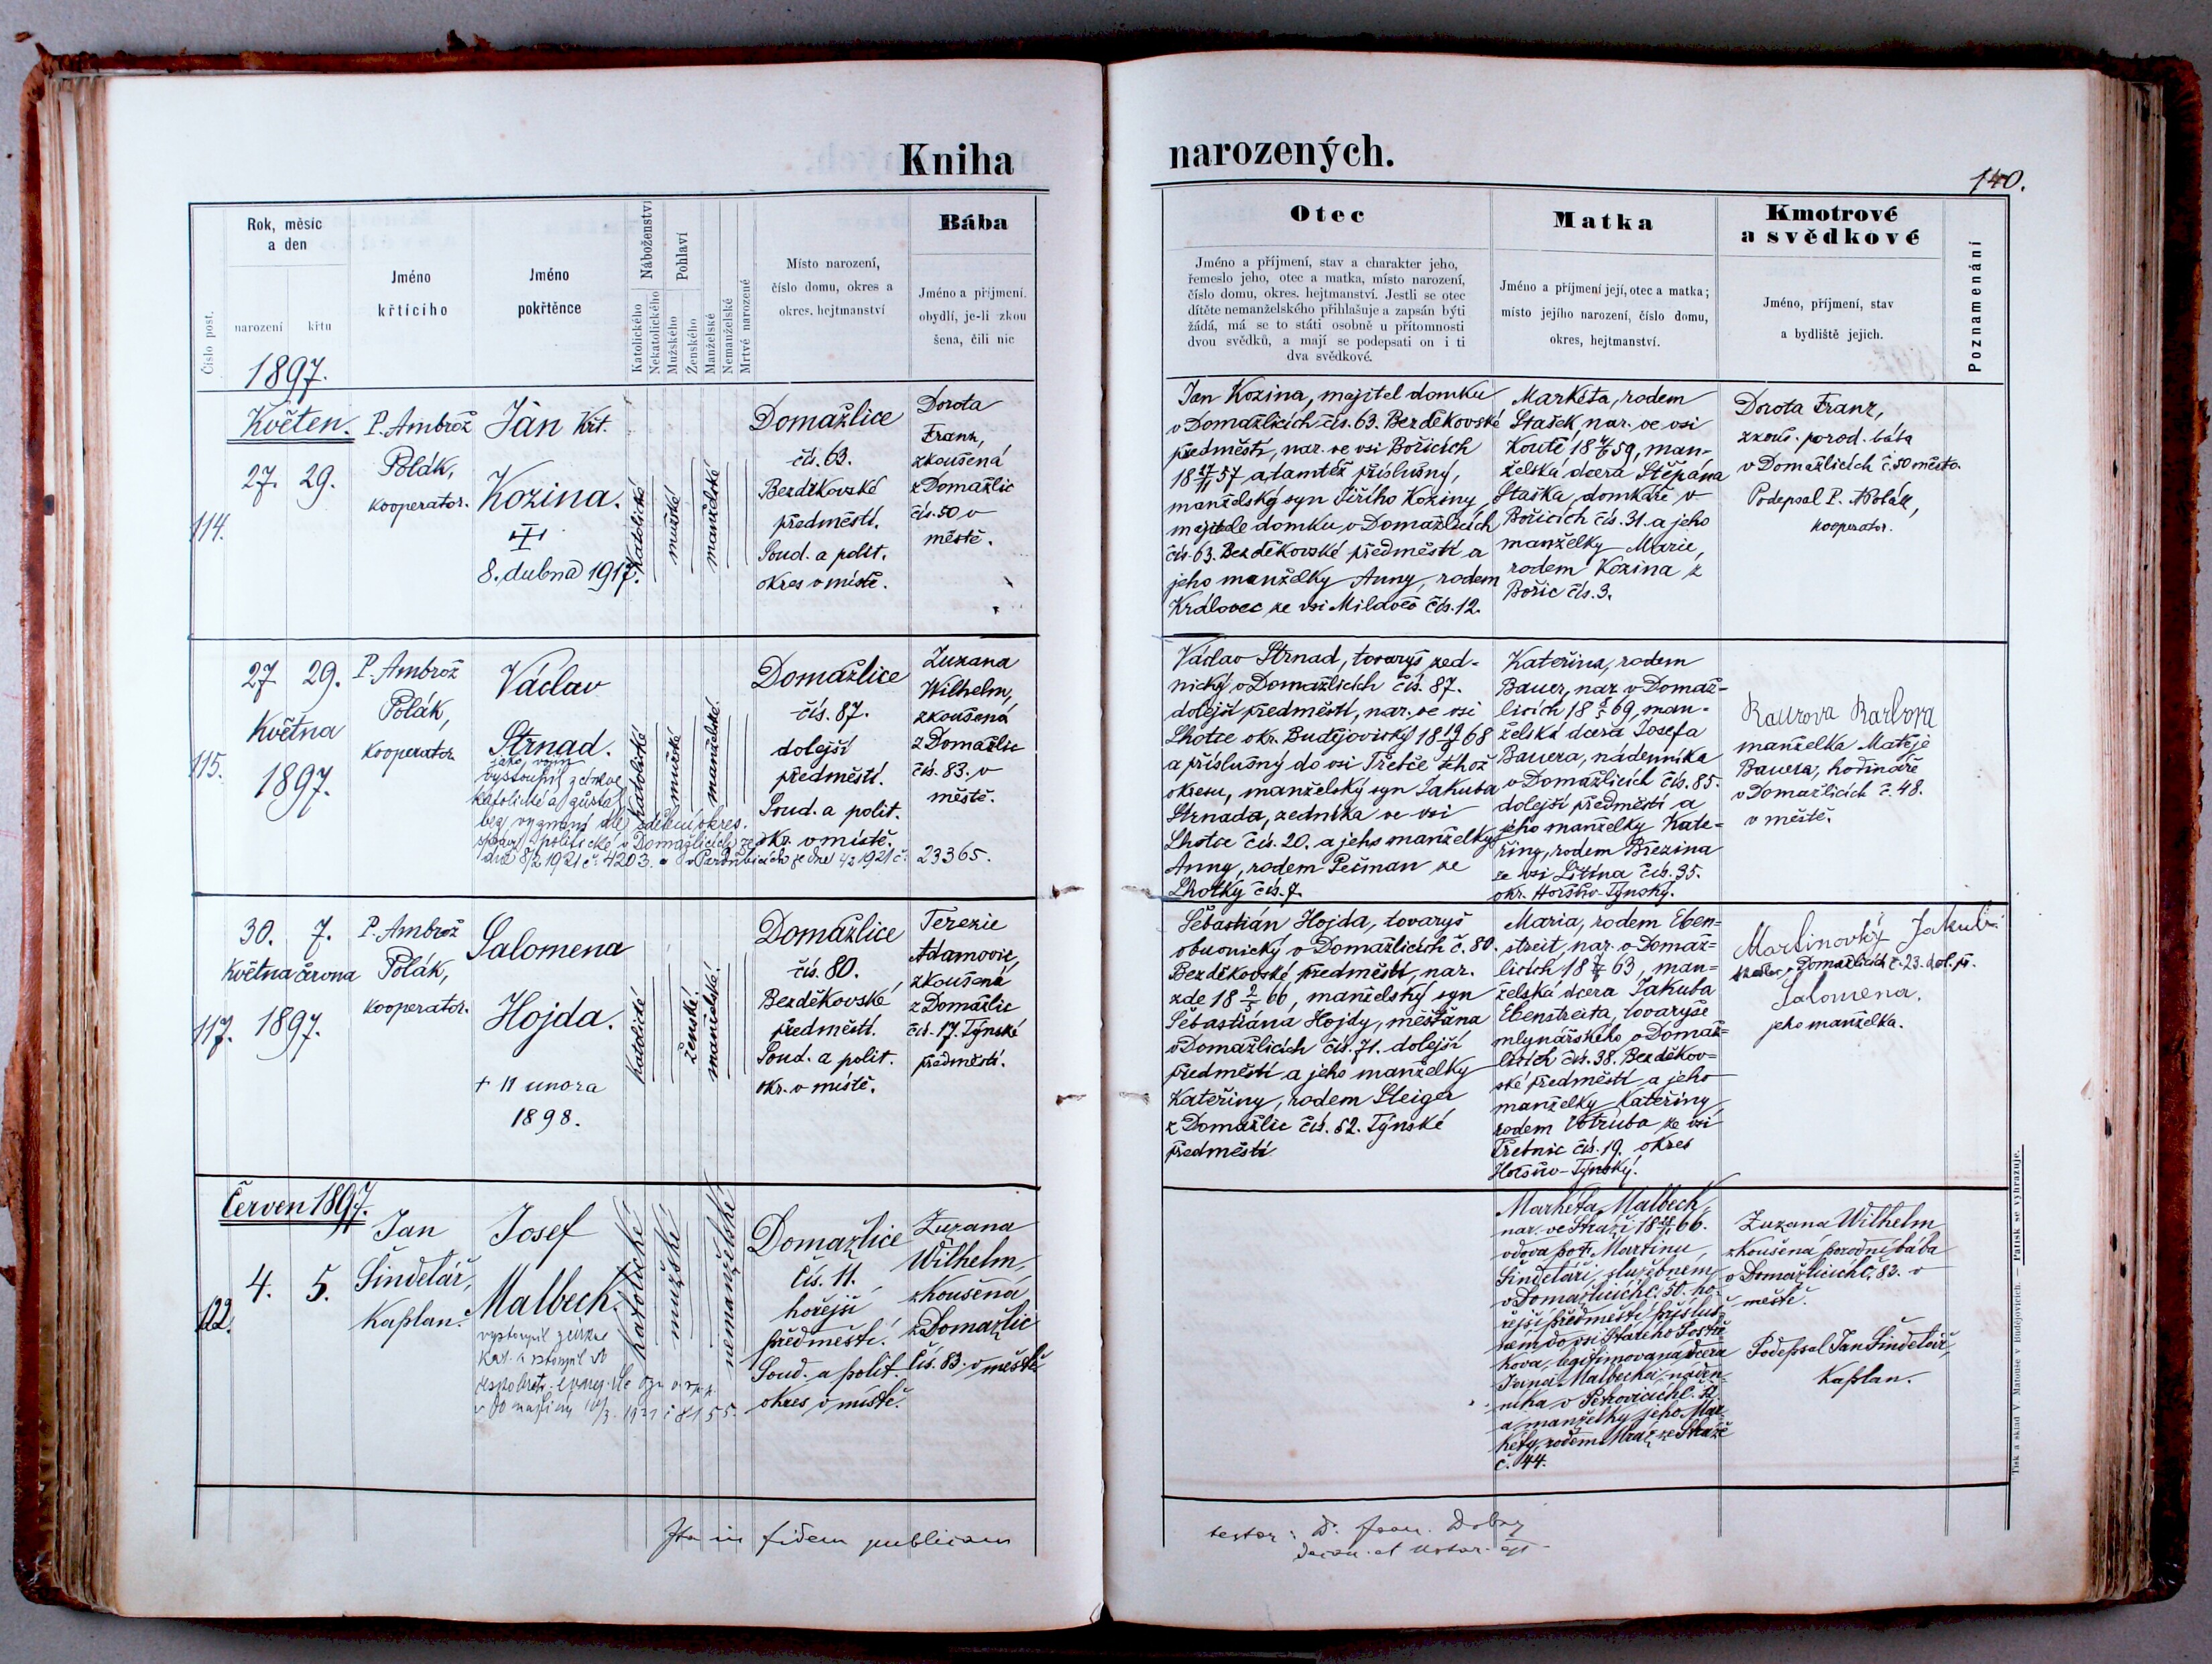 Kniha
narozených.
140.
Číslo post.
Rok, měsíc
a den
narození
křtu
1897.
Jméno
křtícího
Jméno
pokřtěnce
Náboženství
Katolického
Nekatolického
Pohlaví
Mužského
Ženského
Manželské
Nemanželské
Mrtvě narozené
Místo narození,
číslo domu, okres a
okres. hejtmanství
Bába
Jméno a příjmení.
obydlí, je-li zkou
šena, čili nic
Otec
Jméno a příjmení, stav a charakter jeho,
řemeslo jeho, otec a matka, místo narození,
číslo domu, okres. hejtmanství. Jestli se otec
dítěte nemanželského přihlašuje a zapsán býti
žádá, má se to státi osobně u přítomnosti
dvou svědků, a mají se podepsati on i ti
dva svědkové.
Matka
Jméno a příjmení její, otec a matka;
místo jejího narození, číslo domu,
okres, hejtmanství.
Kmotrové
a svědkové
Jméno, příjmení, stav
a bydliště jejich.
Poznamenání
114.
Květen.
27. 29.
P. Ambrož
Polák,
kooperator.
Jan Křt.
Kozina.
8. dubna 1917.
Katolické
mužské
manželské
Domažlice
čís. 63.
Bezděkovské
předměstí.
Soud. a polit.
okres v místě.
Dorota
Franz,
zkoušená
z Domažlic
čís. 50 v
městě.
Jan Kozina, majitel domku
v Domažlicích čís. 63. Bezděkovské
předměstí, nar. ve vsi Bořicích
18 27/11 57 a tamtéž příslušný,
manželský syn Jiřího Koziny
majitele domku v Domažlicích
čís. 63. Bezděkovské předměstí a
jeho manželky Anny, rodem
Královec ze vsi Milavče čís. 12.
Markéta, rodem
Stašek, nar. ve vsi
Koutě 18 59, man-
želská dcera Štěpána
Staška, domkáře v
Bořicích čís. 31. a jeho
manželky Marie,
rodem Kozina z
Bořic čís. 3.
Dorota Franz,
zkouš. porod. bába
v Domažlicích č. 50 město.
Podepsal P. A Polák,
kooperator.
115.
27. 29.
Května
1897.
P. Ambrož
Polák,
kooperator
Václav
Strnad.
jako vojín
vystoupil z církve
katolické a zůstal
bez vyznání dle sdělení okres.
správy politické v Domažlicích ze
dne 8/2 1921 č. 4203. a v Pardubicích ze dne 4/2 1921 č. 23365.
Katolické
mužské
manželské.
Domažlice
čís. 87.
dolejší
předměstí.
Soud. a polit.
okr. v místě.
Zuzana
Wilhelm,
zkoušená
z Domažlic
čís. 83. v
městě.
Václav Strnad, tovaryš zed-
nický v Domažlicích čís. 87.
dolejší předměstí, nar. ve vsi
Lhotce okr. Budějovický 18 19/9 68
a příslušný do vsi Třebče téhož
okresu, manželský syn Jakuba
Strnada, zedníka ve vsi
Lhotce čís. 20. a jeho manželky
Anny, rodem Pešman ze
Lhotky čís. 7.
Kateřina, rodem
Bauer, nar. v Domaž-
licích 18 69, man-
želská dcera Josefa
Bauera, nádenníka
v Domažlicích čís. 85.
dolejší předměstí a
jeho manželky Kate-
řiny, rodem Březina
ze vsi Litína čís. 35.
okr. Horšův-Týnský.
Baurova Barbora
manželka Matěje
Bauera, hodináře
v Domažlicích č. 48.
v městě.
117.
30. 7.
Května června
1897.
P. Ambrož
Polák,
kooperator.
Salomena
Hojda.
† 11 února
1898.
Katolické
ženské.
manželské.
Domažlice
čís. 80.
Bezděkovské
předměstí.
Soud. a polit.
okr. v místě.
Terezie
Adamovic,
zkoušená
z Domažlic
čís. 17. Týnské
předměstí.
Šebastián Hojda, tovaryš
obuvnický v Domažlicích č. 80.
Bezděkovské předměstí, nar.
zde 18 66, manželský syn
Šebastiána Hojdy, měšťana
v Domažlicích čís. 71. dolejší
předměstí a jeho manželky
Kateřiny, rodem Steiger
z Domažlic čís. 52. Týnské
předměstí
Maria, rodem Eben-
streit, nar. v Domaž-
licích 18 63, man-
želská dcera Jakuba
Ebenstreita, tovaryše
mlynářského v Domaž-
licích čís. 38. Bezděkov-
ské předměstí a jeho
manželky Kateřiny
rodem Votruba ze vsi
Třebnic čís. 19. okres
Horšův-Týnský.
Martinovký Jakub.
v Domažlicích č. 23. dol. př.
Salomena,
jeho manželka.
122.
Červen 1897.
4. 5.
Jan
Šindelář,
Kaplan.
Josef
Malbech.
vystoupil z církve
kat. a vstoupil do
českobratr. evang.
1921
Katolické
mužské
nemanželské
Domažlice
čís. 11.
hořejší
předměstí.
Soud. a polit.
okres v místě.
Zuzana
Wilhelm,
zkoušená
z Domažlic
čís. 83. v městě
Markéta Malbech,
nar. ve Stráži 18 66.
vdova po Martinu
Šindeláři, služebném
v Domažlicích č. 50. ho-
řejší předměstí přísluš-
ném do vsi Starého
legitimovaná dcera
Jana Malbecha, náden-
níka v Petrovicích č.
a manželky jeho Mar-
kéty, rodem Mráz ze Stráže
č. 44.
Zuzana Wilhelm
zkoušená porodní bába
v Domažlicích č. 83. v
městě.
Podepsal Jan Šindelář,
Kaplan.
Ita in fidem publicam
testor: D. Joan.
decan. et notar. ap.
Tisk a sklad V. Matouše v Budějovicích. — Patisk se vyhrazuje.